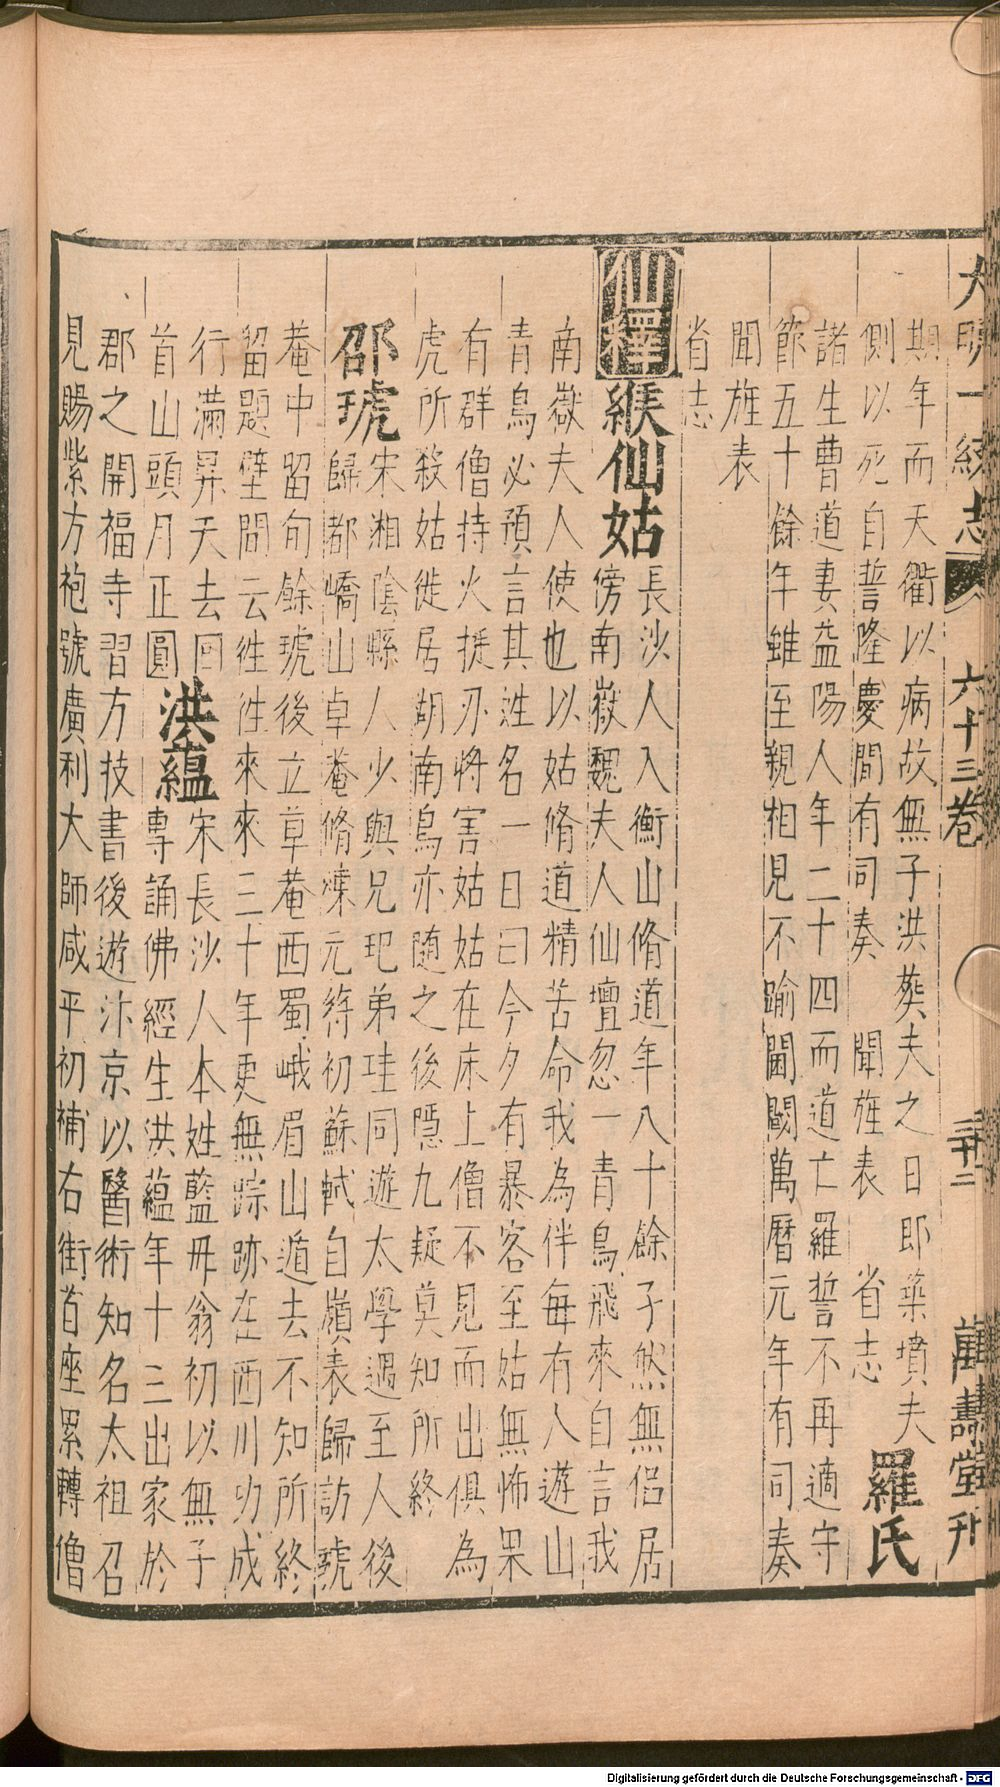 大明一統志 六十三卷 三十二 萬壽堂刊
期年而天衢以病故無子洪葬夫之日即築墳夫
側以死自誓隆慶間有司奏 聞旌表 省志 羅氏
諸生曹道妻益陽人年二十四而道亡羅誓不再適守
節五十餘年雖至親相見不踰閫閾萬曆元年有司奏
聞旌表
省志
仙釋 緱仙姑 長沙人入衡山脩道年八十餘孑然無侶居
傍南嶽魏夫人仙壇忽一青鳥飛來自言我
南嶽夫人使也以姑脩道精苦命我為伴每有人遊山
青鳥必預言其姓名一日曰今夕有暴客至姑無怖果
有群僧持火挺刃將害姑姑在床上僧不見而出俱為
虎所殺姑徙居湖南鳥亦随之後隱九疑莫知所終
邵琥 宋湘陰縣人少與兄玘弟珪同遊太學遇至人後
歸都嶠山卓菴脩煉元符初蘇軾自嶺表歸訪琥
菴中留句餘琥後立草菴西蜀峨眉山遁去不知所終
留題壁間云徃徃來來三十年更無踪跡在西川功成
行滿昇天去回
首山頭月正圓 洪蘊 宋長沙人本姓藍毋翁初以無子
專誦佛經生洪蘊年十三出家於
郡之開福寺習方技書後遊汴京以醫術知名太祖召
見賜紫方袍號廣利大師咸平初補右街首座累轉僧
Digitalisierung gefördert durch die Deutsche Forschungsgemeinschaft - DFG